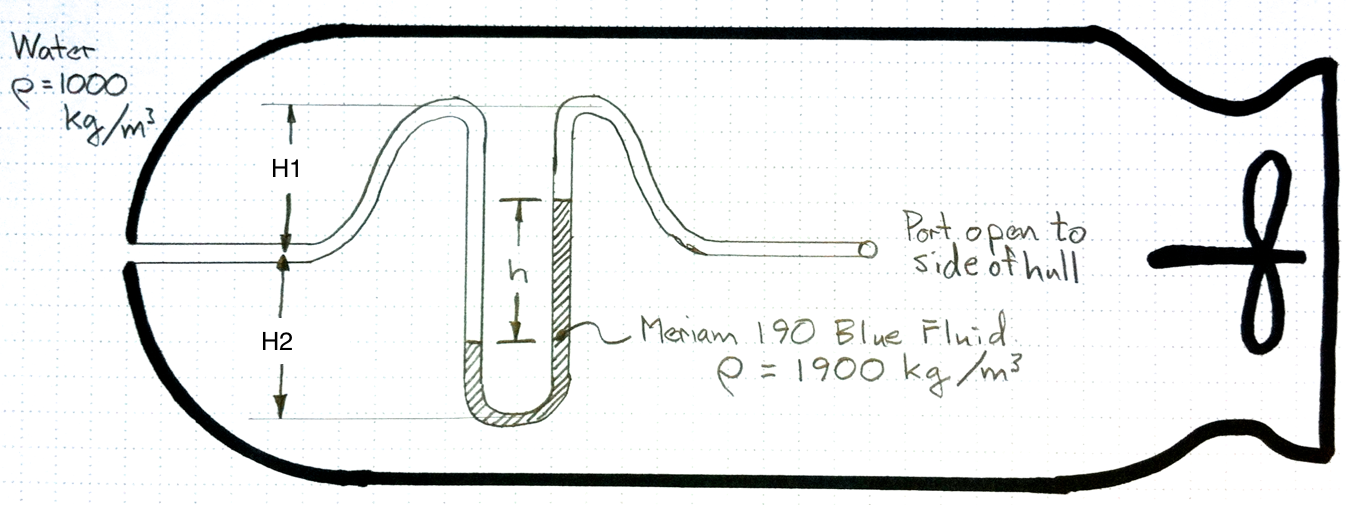 Water
ρ=1000
kg/m³
H1
H2
h
Port open to
side of hull
Meriam 190 Blue Fluid
ρ = 1900 kg/m³